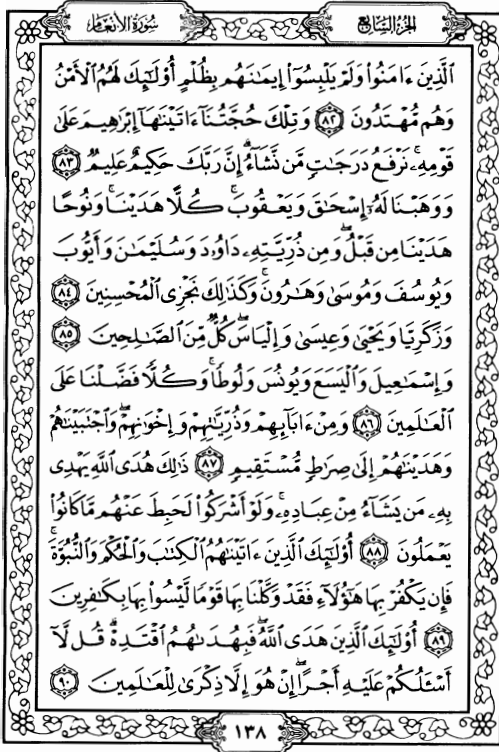 سُورَةُ الأَنْعَامِ
الجُزْءُ السَّابِعُ
الَّذِينَ ءَامَنُوا۟ وَلَمْ يَلْبِسُوٓا۟ إِيمَـٰنَهُم بِظُلْمٍ أُو۟لَـٰٓئِكَ لَهُمُ الْأَمْنُ
وَهُم مُّهْتَدُونَ ٨٢ وَتِلْكَ حُجَّتُنَآ ءَاتَيْنَـٰهَآ إِبْرَٰهِيمَ عَلَىٰ
قَوْمِهِۦ ۚ نَرْفَعُ دَرَجَـٰتٍ مَّن نَّشَآءُ ۗ إِنَّ رَبَّكَ حَكِيمٌ عَلِيمٌ ٨٣
وَوَهَبْنَا لَهُۥٓ إِسْحَـٰقَ وَيَعْقُوبَ ۚ كُلًّا هَدَيْنَا ۚ وَنُوحًا
هَدَيْنَا مِن قَبْلُ ۖ وَمِن ذُرِّيَّتِهِۦ دَاوُۥدَ وَسُلَيْمَـٰنَ وَأَيُّوبَ
وَيُوسُفَ وَمُوسَىٰ وَهَـٰرُونَ ۚ وَكَذَٰلِكَ نَجْزِى الْمُحْسِنِينَ ٨٤
وَزَكَرِيَّا وَيَحْيَىٰ وَعِيسَىٰ وَإِلْيَاسَ ۖ كُلٌّ مِّنَ الصَّـٰلِحِينَ ٨٥
وَإِسْمَـٰعِيلَ وَالْيَسَعَ وَيُونُسَ وَلُوطًا ۚ وَكُلًّا فَضَّلْنَا عَلَى
الْعَـٰلَمِينَ ٨٦ وَمِنْ ءَابَآئِهِمْ وَذُرِّيَّـٰتِهِمْ وَإِخْوَٰنِهِمْ ۖ وَاجْتَبَيْنَـٰهُمْ
وَهَدَيْنَـٰهُمْ إِلَىٰ صِرَٰطٍ مُّسْتَقِيمٍ ٨٧ ذَٰلِكَ هُدَى اللَّهِ يَهْدِى
بِهِۦ مَن يَشَآءُ مِنْ عِبَادِهِۦ ۚ وَلَوْ أَشْرَكُوا۟ لَحَبِطَ عَنْهُم مَّا كَانُوا۟
يَعْمَلُونَ ٨٨ أُو۟لَـٰٓئِكَ الَّذِينَ ءَاتَيْنَـٰهُمُ الْكِتَـٰبَ وَالْحُكْمَ وَالنُّبُوَّةَ ۚ
فَإِن يَكْفُرْ بِهَا هَـٰٓؤُلَآءِ فَقَدْ وَكَّلْنَا بِهَا قَوْمًا لَّيْسُوا۟ بِهَا بِكَـٰفِرِينَ
٨٩ أُو۟لَـٰٓئِكَ الَّذِينَ هَدَى اللَّهُ ۖ فَبِهُدَىٰهُمُ اقْتَدِهْ ۗ قُل لَّآ
أَسْـَٔلُكُمْ عَلَيْهِ أَجْرًا ۖ إِنْ هُوَ إِلَّا ذِكْرَىٰ لِلْعَـٰلَمِينَ ٩٠
١٣٨